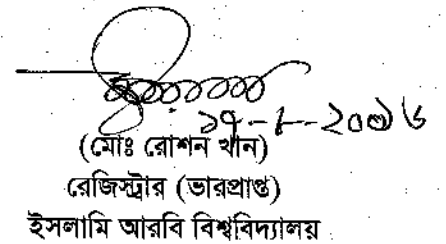 ১৭-১-২০১৬
(মোঃ রোশন খান)
রেজিস্ট্রার (ভারপ্রাপ্ত)
ইসলামি আরবি বিশ্ববিদ্যালয়